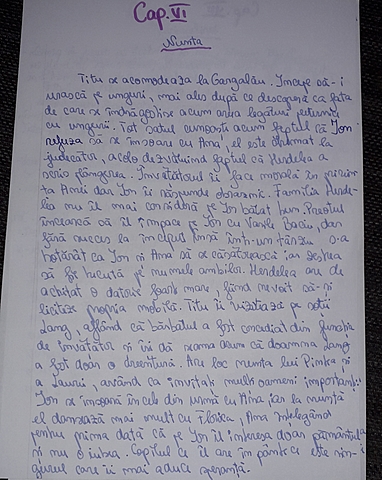 Cap. VI
Nunta
Titu se acomodează la Gargalău. Începe să-i
urască pe unguri, mai ales după ce descoperă că fata
de care se îndrăgostise acum avea legături puternice
cu ungurii. Tot satul cunoștea acum faptul că Ion
refuza să se însoare cu Ana, el este chemat la
judecător, acolo dezvăluind faptul că Herdelea a
scris plângerea. Învățătorul îi face morală în privin
ța Anei dar Ion îi răspunde obraznic. Familia Herde-
lea nu îl mai consideră pe Ion băiat bun. Preotul
încearcă să îl împace pe Ion cu Vasile Baciu, dar
fără succes la început însă într-un târziu s-a
hotărât ca Ion și Ana să se căsătorească iar zestrea
să fie trecută pe numele ambilor. Herdelea are de
achitat o datorie foarte mare, fiind nevoit să-și
liciteze propria mobilă. Titu îi vizitează pe soții
Lang, aflând că bărbatul a fost concediat din funcția
de învățător și își dă seama acum că doamna Lang
a fost doar o aventură. Are loc nunta lui Pintea și
a Laurei, având ca invitați mulți oameni importanți.
Ion se însoară în cele din urmă cu Ana iar la nuntă
el dansează mai mult cu Florica, Ana înțelegând
pentru prima dată că pe Ion îl interesa doar pământul
și nu o iubea. Copilul ce îl are în pântece este sin-
gurul care îi mai aduce speranță.